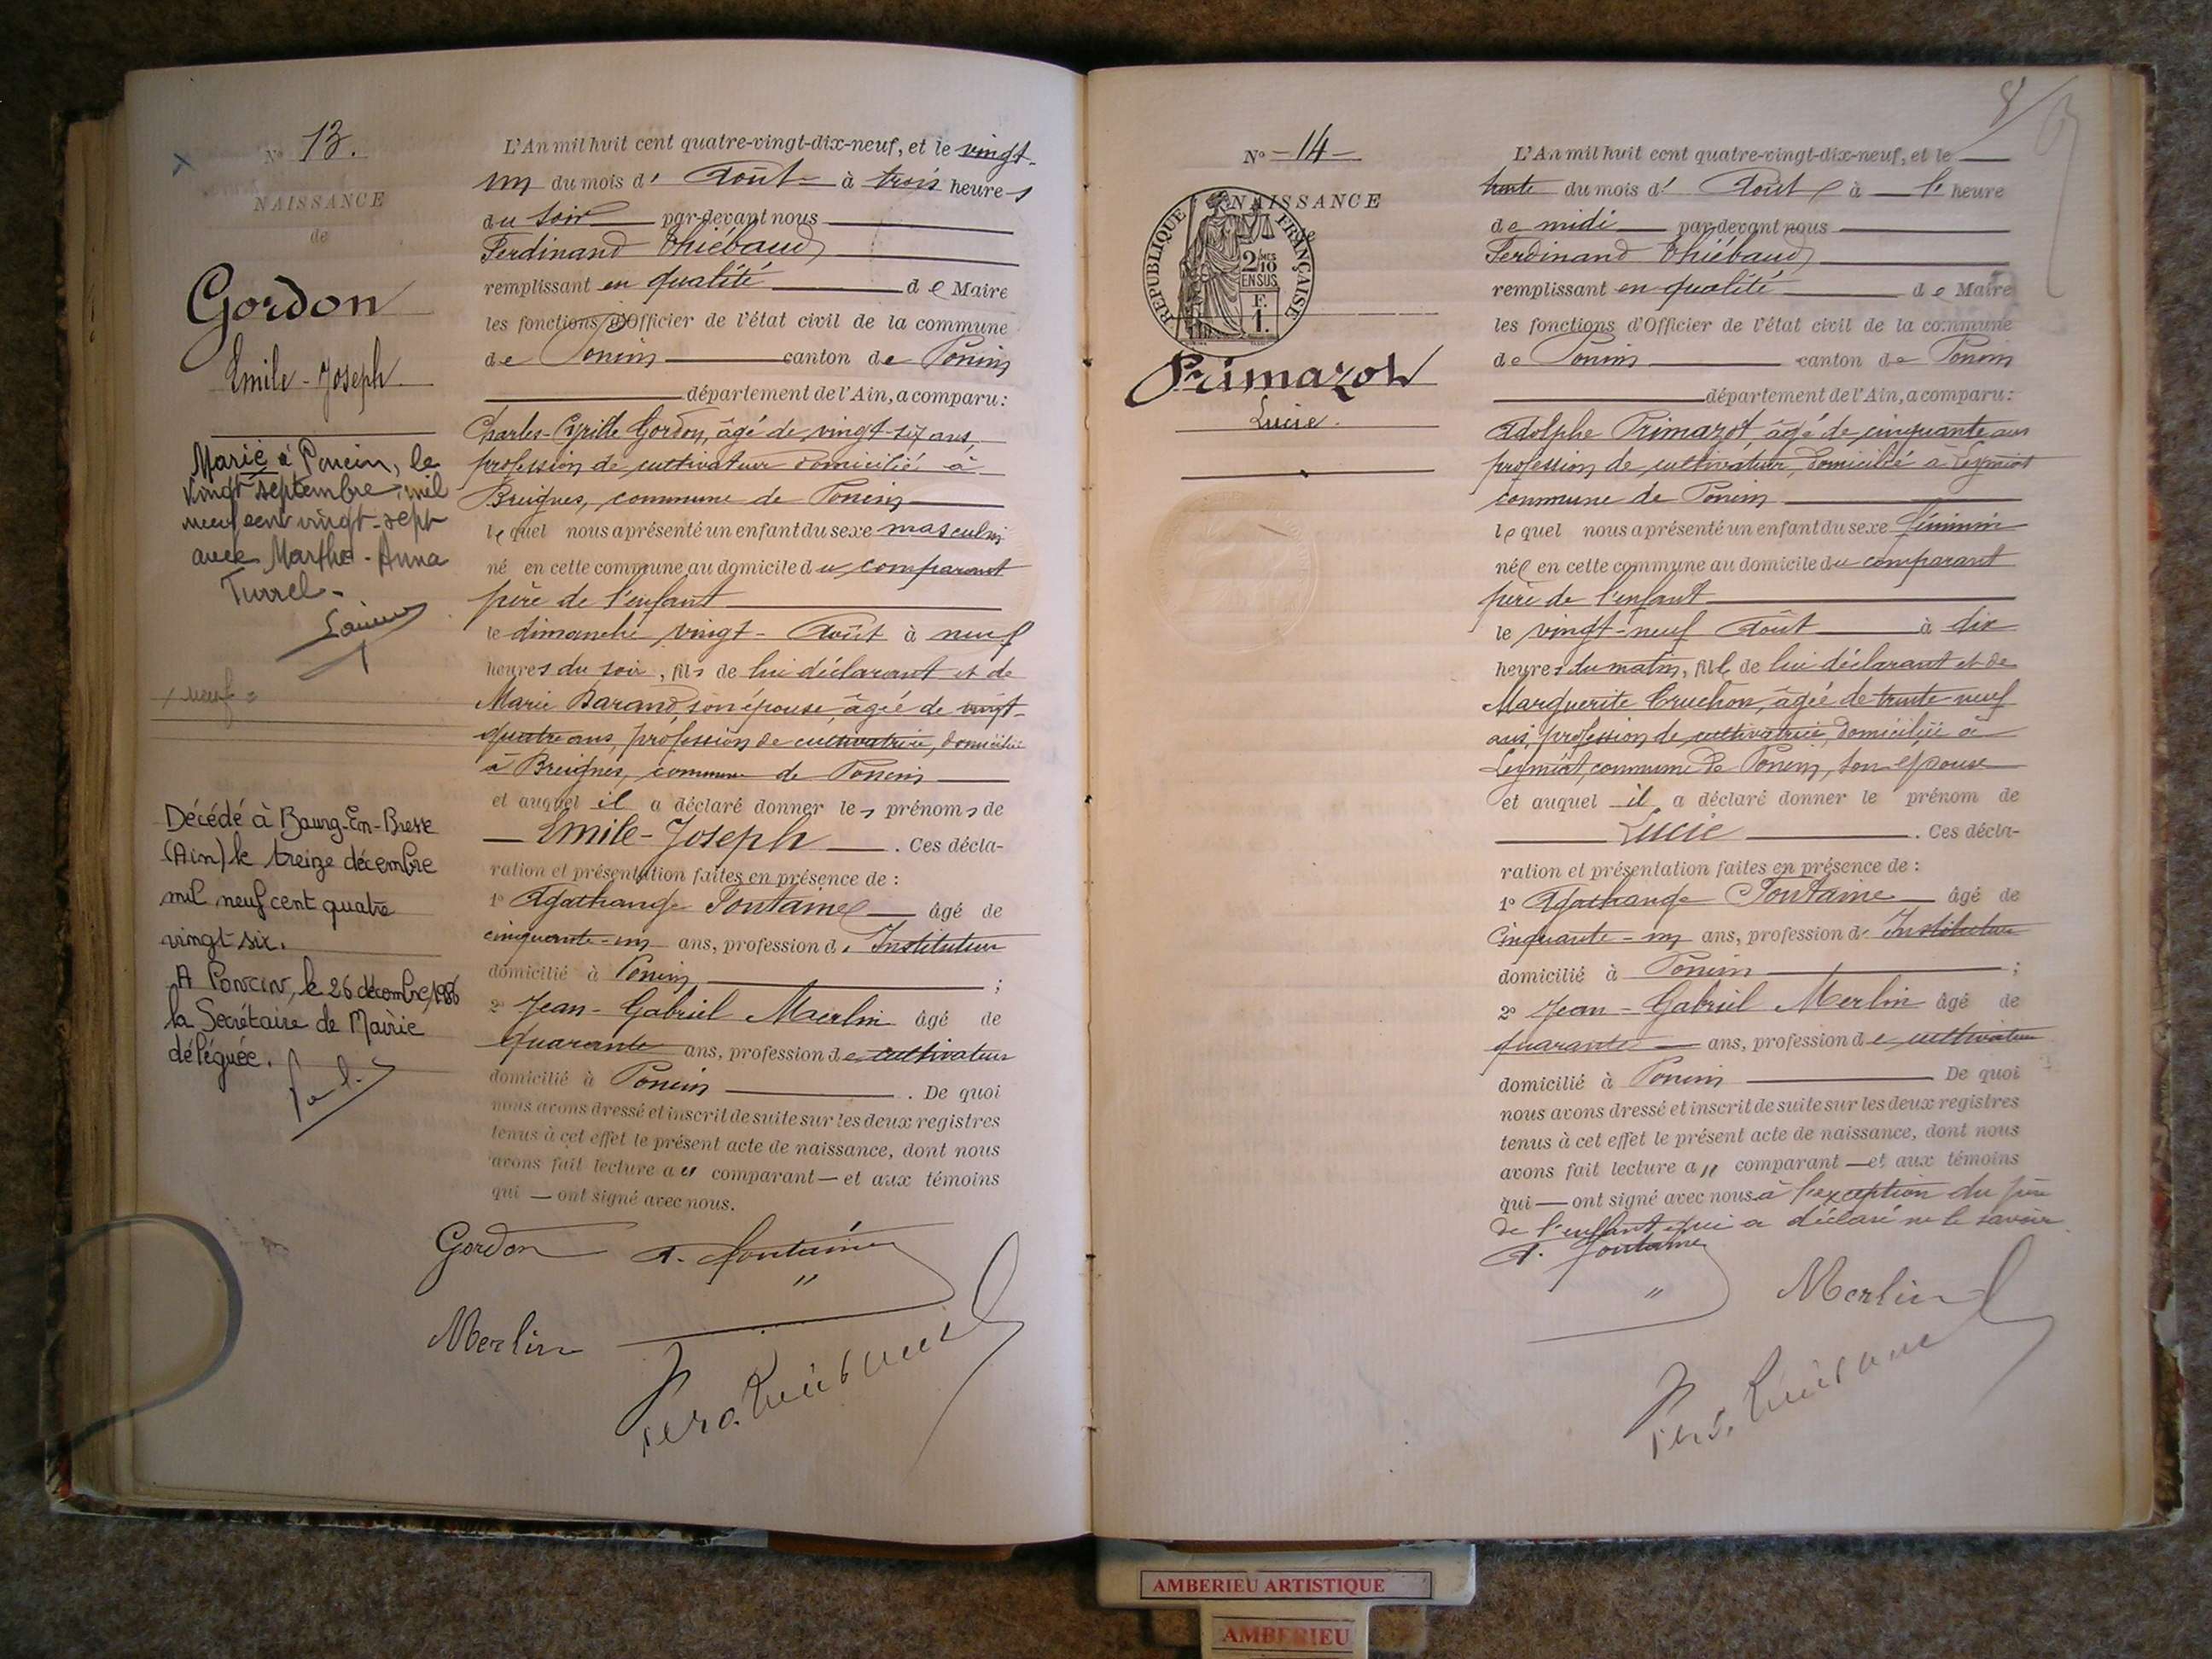 N° 13.
NAISSANCE
de
Gordon
Emile-Joseph
Marié à Poncin, le
vingt septembre mil
neuf cent vingt-sept
avec Marthe-Anna
Turrel.
Décédé à Bourg-En-Bresse
(Ain) le treize décembre
mil neuf cent quatre
vingt six.
A Poncin, le 26 décembre 1986
la Secrétaire de Mairie
déléguée.
L'An mil huit cent quatre-vingt-dix-neuf, et le vingt-
un du mois d'Août à trois heures
du soir par-devant nous
Ferdinand Thiébaud
remplissant en qualité de Maire
les fonctions d'Officier de l'état civil de la commune
de Poncin canton de Poncin
département de l'Ain, a comparu:
Charles-Cyrille Gordon, âgé de vingt-six ans,
profession de cultivateur domicilié à
Breignes, commune de Poncin
lequel nous a présenté un enfant du sexe masculin
né en cette commune au domicile du comparant
père de l'enfant
le dimanche vingt-Août à neuf
heures du soir, fils de lui déclarant et de
Marie Barand, son épouse, âgée de vingt-
quatre ans, profession de cultivatrice, domiciliée
à Breignes, commune de Poncin
et auquel il a déclaré donner les prénoms de
Emile-Joseph. Ces décla-
ration et présentation faites en présence de :
1° Agathange Fontaine âgé de
cinquante-un ans, profession d'Instituteur
domicilié à Poncin ;
2° Jean-Gabriel Merlin âgé de
quarante ans, profession de cultivateur
domicilié à Poncin. De quoi
nous avons dressé et inscrit de suite sur les deux registres
tenus à cet effet le présent acte de naissance, dont nous
avons fait lecture au comparant et aux témoins
qui ont signé avec nous.
Gordon A. Fontaine
Merlin
N° 14
NAISSANCE
REPUBLIQUE FRANÇAISE
2/10
EN SUS
F.
1.
Primazot
Lucie.
8
L'An mil huit cent quatre-vingt-dix-neuf, et le
trente du mois d'Août à 1e heure
de midi par-devant nous
Ferdinand Thiébaud
remplissant en qualité de Maire
les fonctions d'Officier de l'état civil de la commune
de Poncin canton de Poncin
département de l'Ain, a comparu:
Adolphe Primazot, âgé de cinquante ans
profession de cultivateur, domicilié à Leymiat
commune de Poncin
lequel nous a présenté un enfant du sexe féminin
née en cette commune au domicile du comparant
père de l'enfant
le vingt-neuf Août à dix
heures du matin, fille de lui déclarant et de
Marguerite Cruchon, âgée de trente-neuf
ans, profession de cultivatrice, domiciliée à
Leymiat, commune de Poncin, son épouse
et auquel il a déclaré donner le prénom de
Lucie. Ces décla-
ration et présentation faites en présence de :
1° Agathange Fontaine âgé de
Cinquante-un ans, profession d'Instituteur
domicilié à Poncin ;
2° Jean-Gabriel Merlin âgé de
quarante ans, profession de cultivateur
domicilié à Poncin De quoi
nous avons dressé et inscrit de suite sur les deux registres
tenus à cet effet le présent acte de naissance, dont nous
avons fait lecture au comparant et aux témoins
qui ont signé avec nous à l'exception du père
de l'enfant qui a déclaré ne le savoir
A. Fontaine
Merlin
AMBERIEU ARTISTIQUE
AMBERIEU